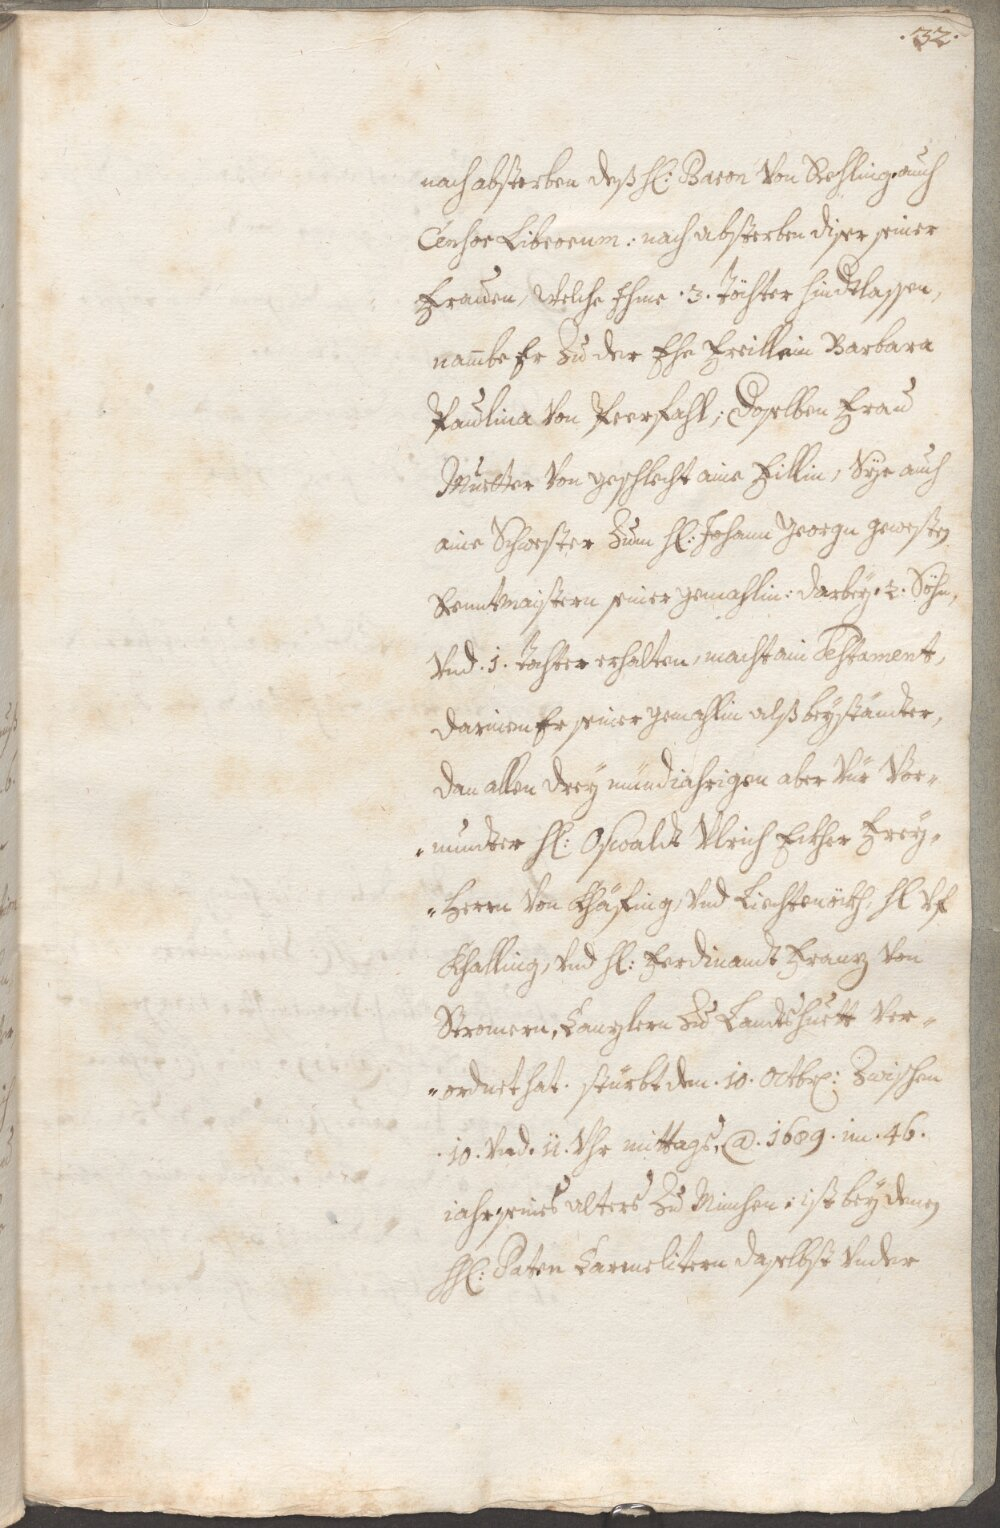 .32.
nach absterben deß H: Baron von Rechling. auch
Censor Librorum: nach absterben diser seiner
Frauen, welche Ihme .3. Töchter hindtlassen,
nambe Er Zu der Ehe Freillein Barbara
Paulina von Peerfahl; doselben Frau
Muetter von geschlecht aine Zillin, Sÿe auch
aine Schwester Zum H: Johann Georgn gewesten
Rentmaistern seiner gemahlin: darbeÿ .2. Söhn,
Vnd .1. Tochter erhalten, macht ain Testament,
darinen Er seiner gemahlin alß beÿständter,
dan allen dreÿ mündiahrigen aber Vür Vor-
-mundter H: Oswaldt Vlrich Eckher Freÿ-
-Herrn von Khäpfing, vnd Liechtenöckh, H Vf
Khalling, vnd H: Ferdinandt Franz von
Stromern, Canzlern Zu Landtshuett ver-
-ordnet hat. stürbt den .10. Octbr: Zwischen
.10. Vnd .11. Vhr mittags, @. 1689. im .46.
iahr seines alters Zu Minchen: ist beÿ denen
HH: Paten Carmelitern daselbst vnder